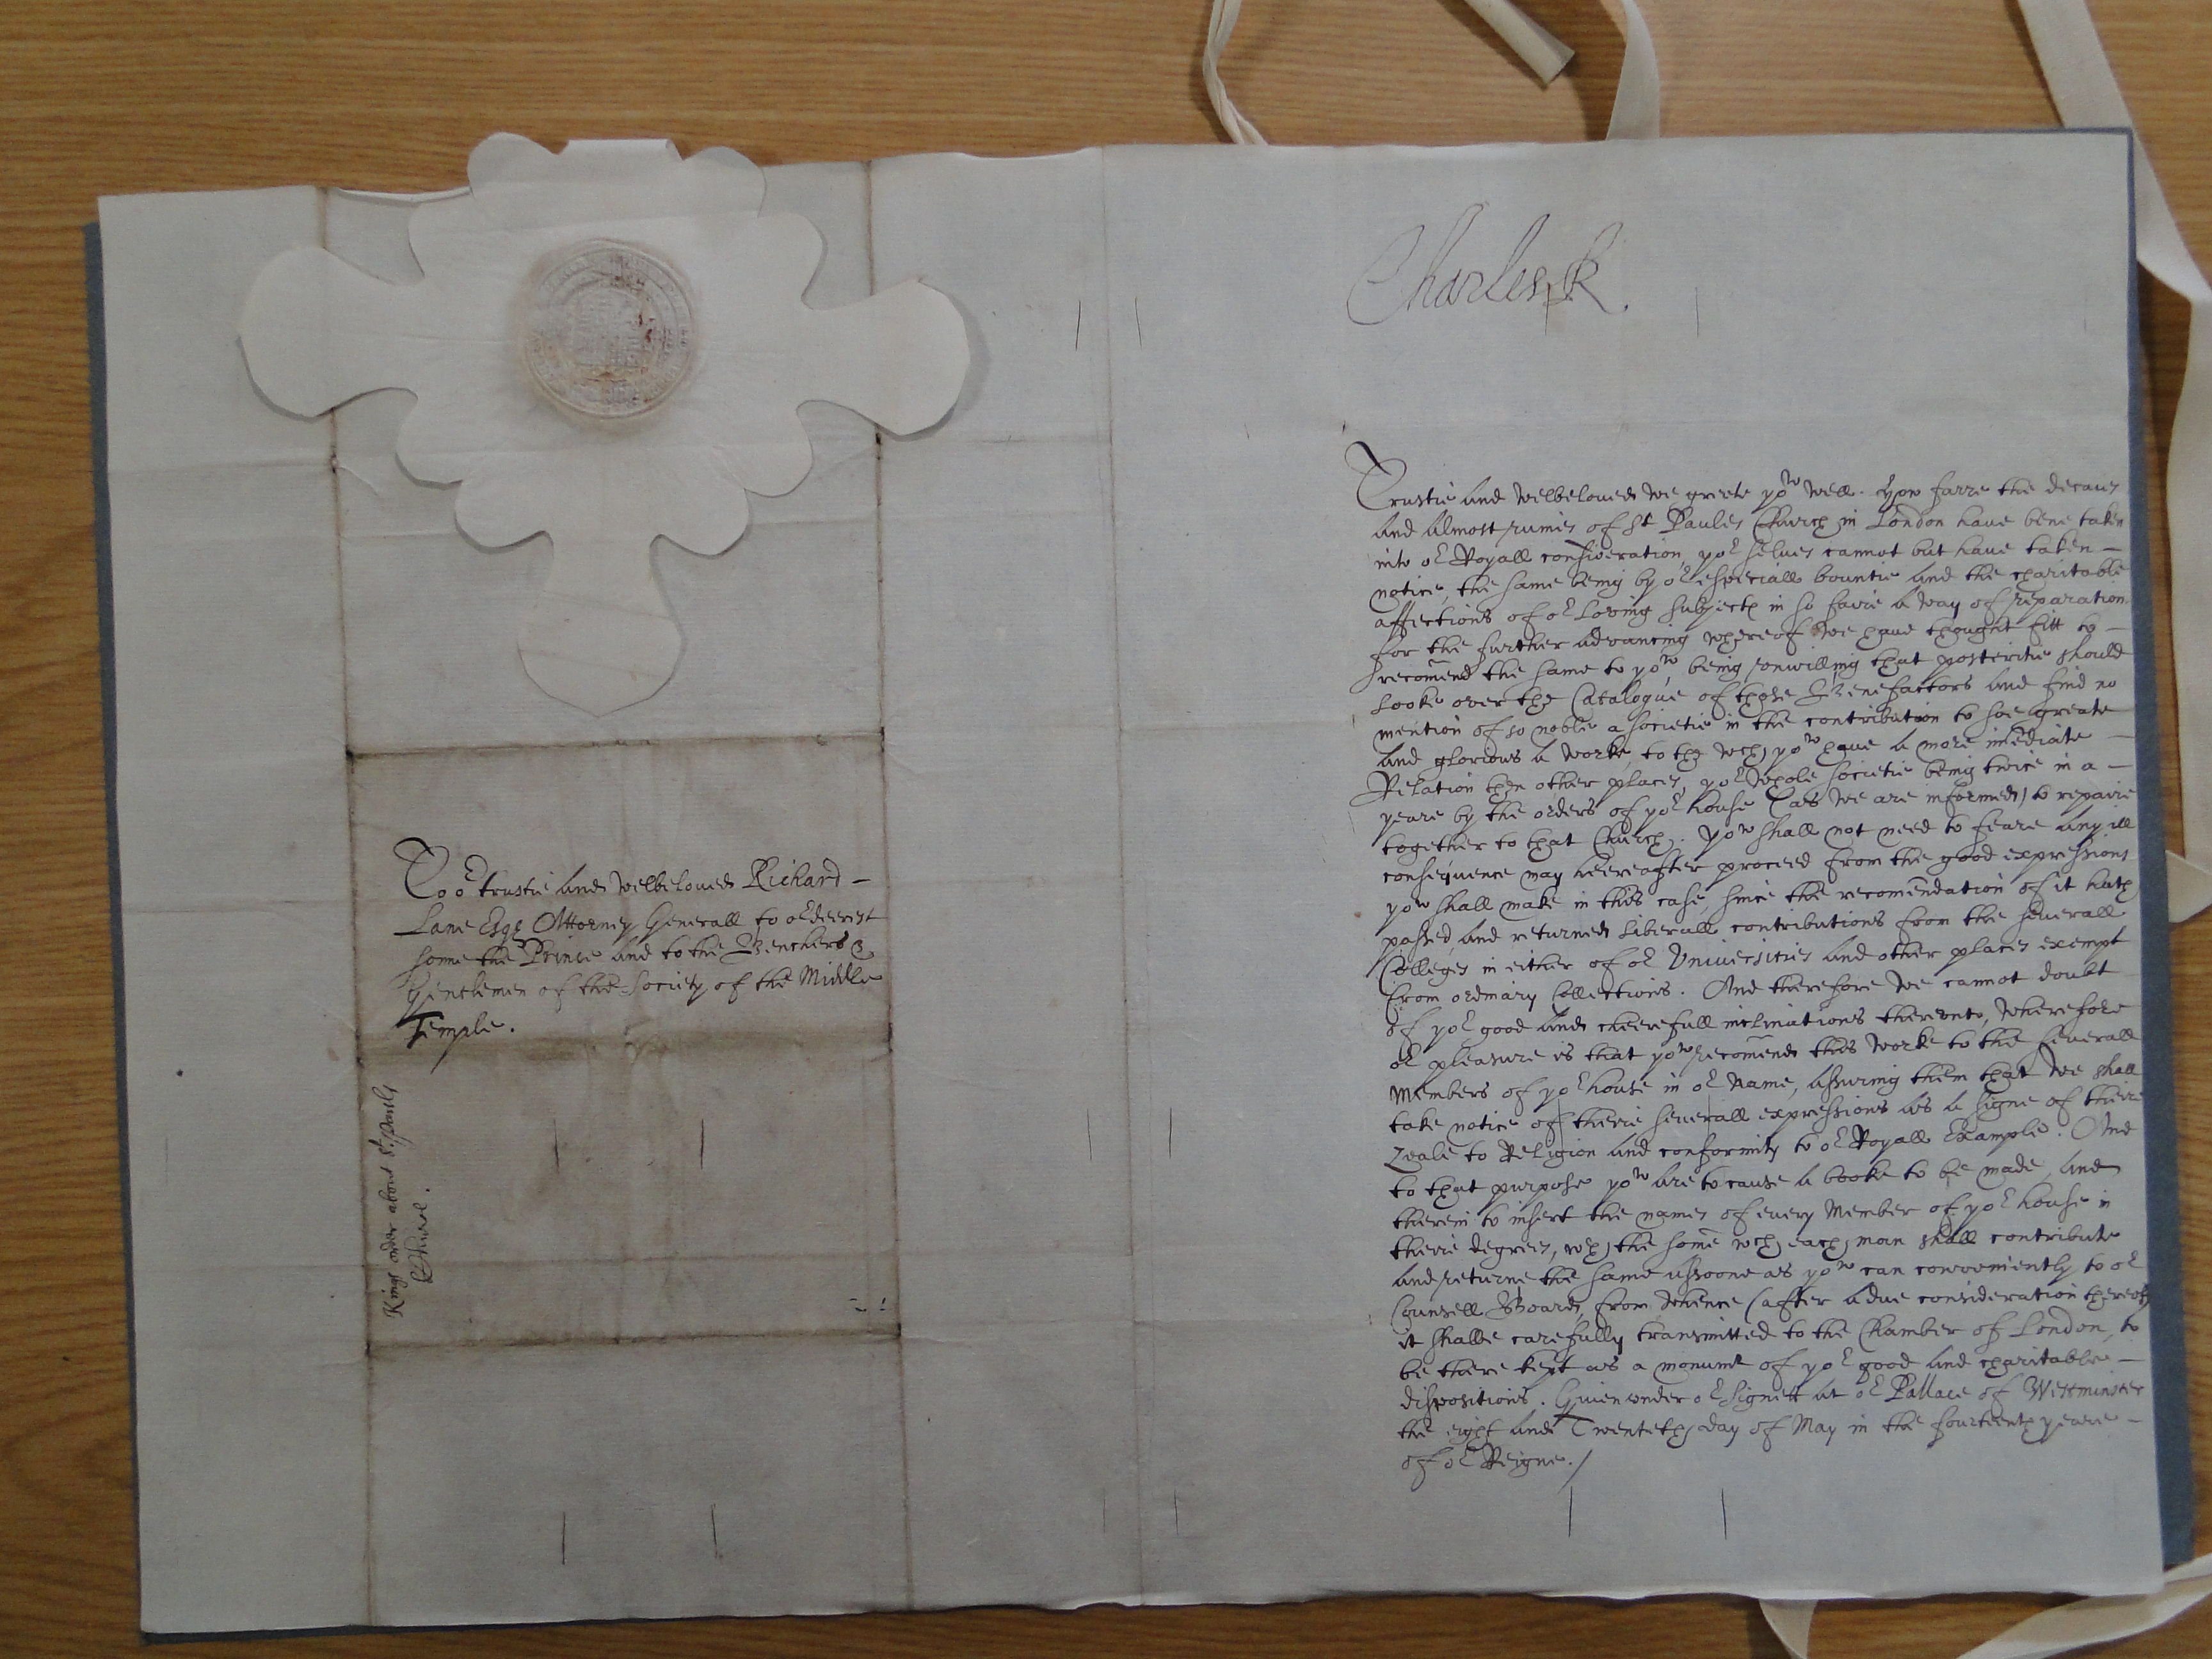 To or trustie and welbeloved Richard -
Lane Esqr Attorney Generall to or deerest
sonne the Prince and to the Benchers &
Gentlemen of the Society of the Middle
Temple.
Kings order about St. Pauls
Church.
Charles R.
Trustie and welbeloved we greete yow well. how farre the decaies
and almost ruines of St Paules Church in London have bene taken
into or Royall consideration, yor selves cannot but have taken -
notice, the same being by or especiall bountie and the charitable
affections of or loving subjects in so faire a way of reparation.
for the further advancing whereof we have thought fitt to -
recomend the same to yow, being vnwilling that posteritie should
looke over the Catalogue of those Benefactors and find no
mention of so noble a societie in the contribution to soe greate
and glorious a worke, to the wch yow have a more imediate -
Relation then other places, yor whole societie being twice in a -
yeare by the orders of yor house (as we are informed) to repaire
together to that Church. Yow shall not need to feare any ill
consequence may heereafter proceed from the good expressions
yow shall make in this case, since the recomendation of it hath
passed and returned liberall contributions from the severall
Colleges in either of or Vniversities and other places exempt
from ordinary Collections. And therefore we cannot doubt
of yor good and cheerefull inclinations therevnto, wherefore
or pleasure is that yow recomend this worke to the severall
Members of yor house in or Name, assuring them that we shall
take notice of theire severall expressions as a signe of theire
zeale to Religion and conformity to or Royall Example. And
to that purpose yow are to cause a booke to be made, and
therein to insert the names of every Member of yor house in
theire degrees, wth the some wch each man shall contribute
and returne the same assoone as yow can conveniently to or
Counsell Board, from whence (after a due consideration thereof)
it shalbe carefully transmitted to the Chamber of London, to
be there kept as a monumt of yor good and charitable -
dispositions. Given vnder or Signett at or Pallace of Westminster
the eight and Twenteth day of May in the fourteenth yeare -
of or Reigne./